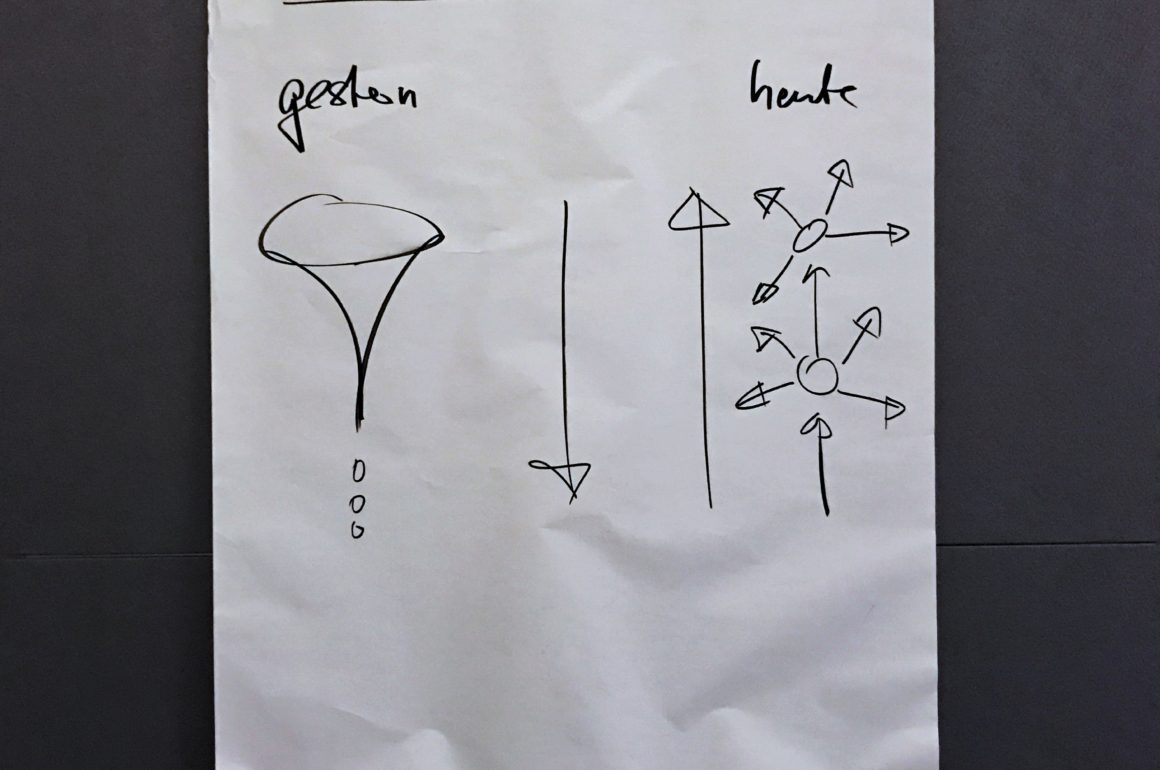 gestern
heute